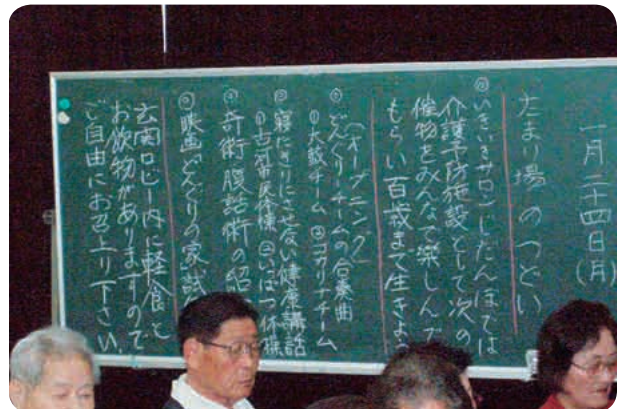 一月二十四日(月)
たまり場のつどい
◎いきいきサロンじだんぼでは
介護予防施設として次の
催物をみんなで楽しんで
もらい百歳まで生きよう
(オープニング)
◎どんぐりチームの合奏曲
①大鼓チーム ②コカリナチーム
◎寝たきりにさせない健康講話
① ② 体操
◎奇術腹話術の紹
◎映画「どんぐりの家」試
玄関ロビー内に軽食と
お飲物がありますので
ご自由にお召上り下さい。